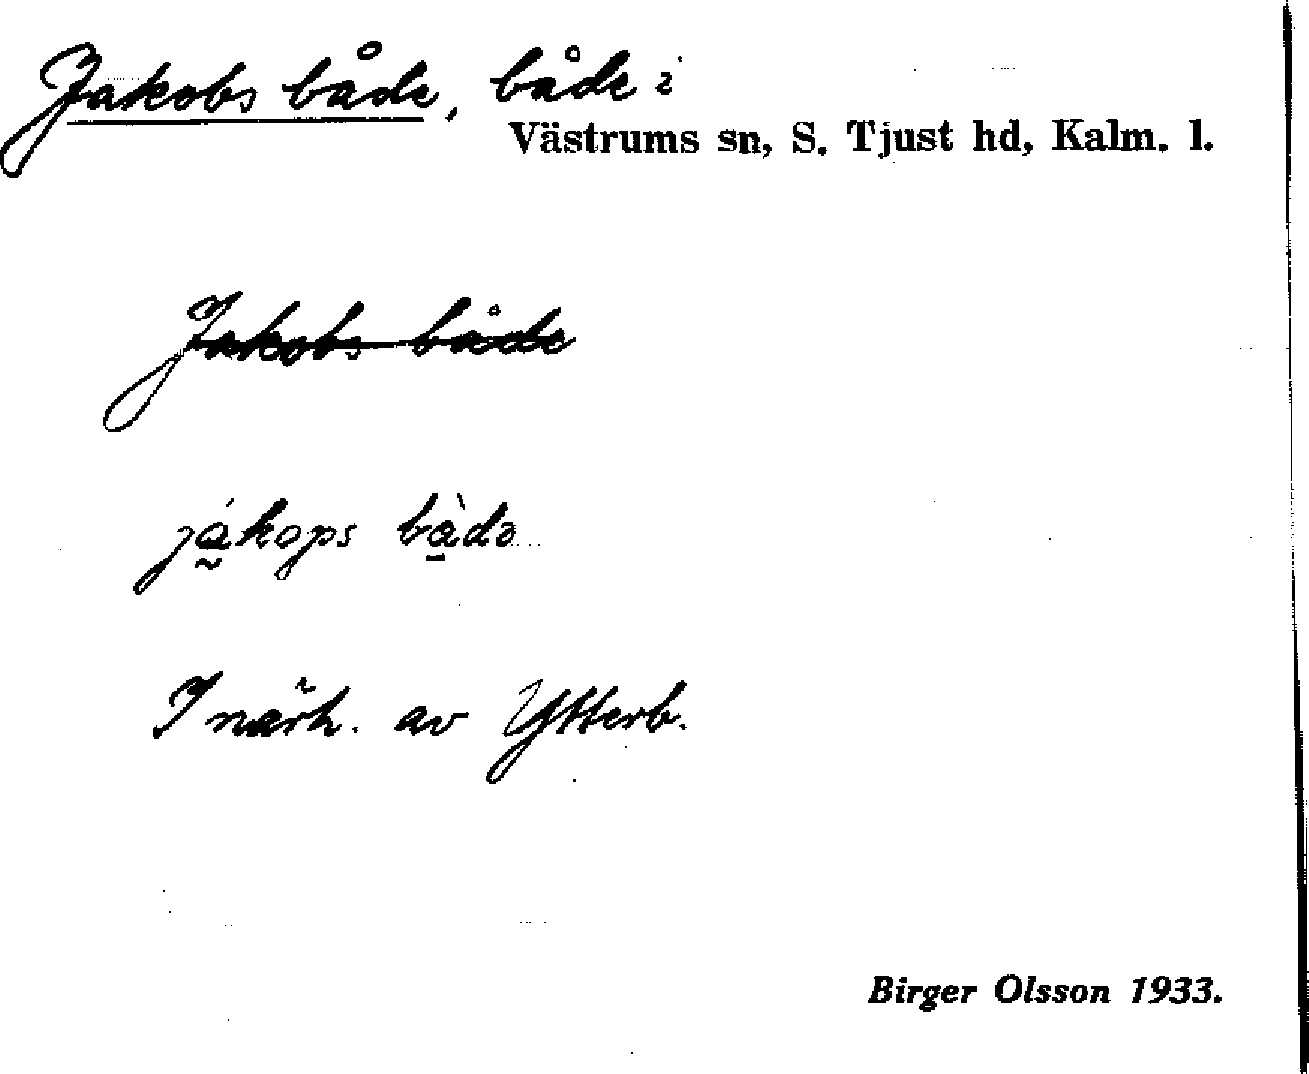 Jakobs både, både i
Västrums sn, S. Tjust hd, Kalm. l.
Jakobs både
jákops bàdə
I närh. av Ytterb.
Birger Olsson 1933.